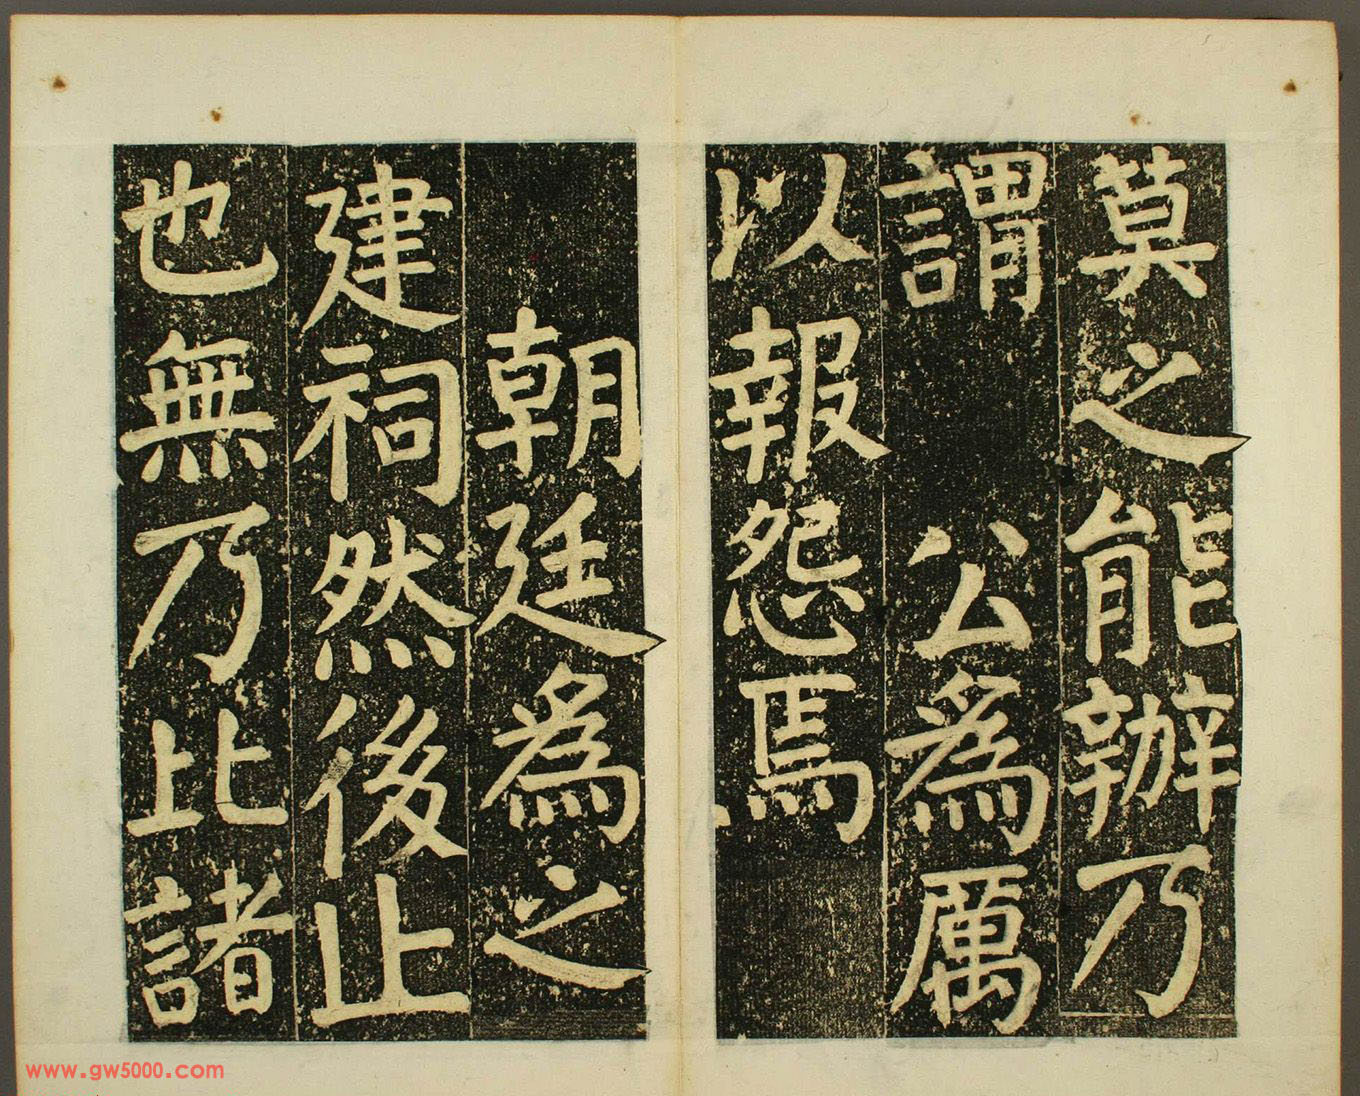 莫之能辦乃
謂 公為厲
以報怨焉
朝廷為之
建祠然後止
也無乃比諸
www.gw5000.com